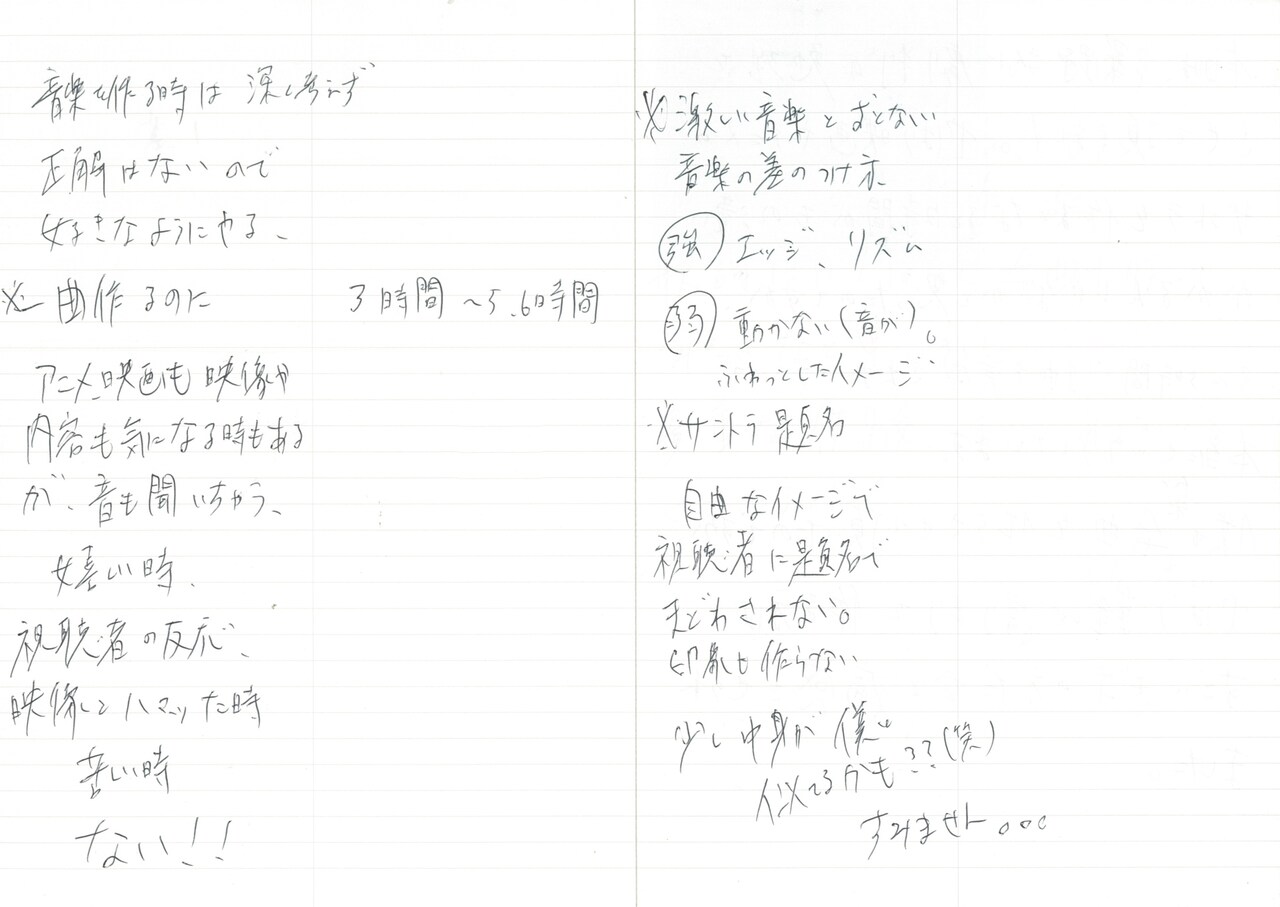 音楽を作る時は 深く考えず
正解はないので
好きなようにやる、
※一曲作るのに 3時間〜5、6時間
アニメ、映画も映像や
内容も気になる時もある
が、音も聞いちゃう、
嬉しい時、
視聴者の反応、
映像とハマッた時
苦しい時
ない!!
※激しい音楽とまとない
音楽の差のつけ方、
強 エッジ、リズム
弱 動かない(音が)。
ふわっとしたイメージ
※サントラ題名
自由なイメージで
視聴者に題名で
まどわされない。
印象も作らない
少し中身が僕に
似てるかも??(笑)
すみません。。。